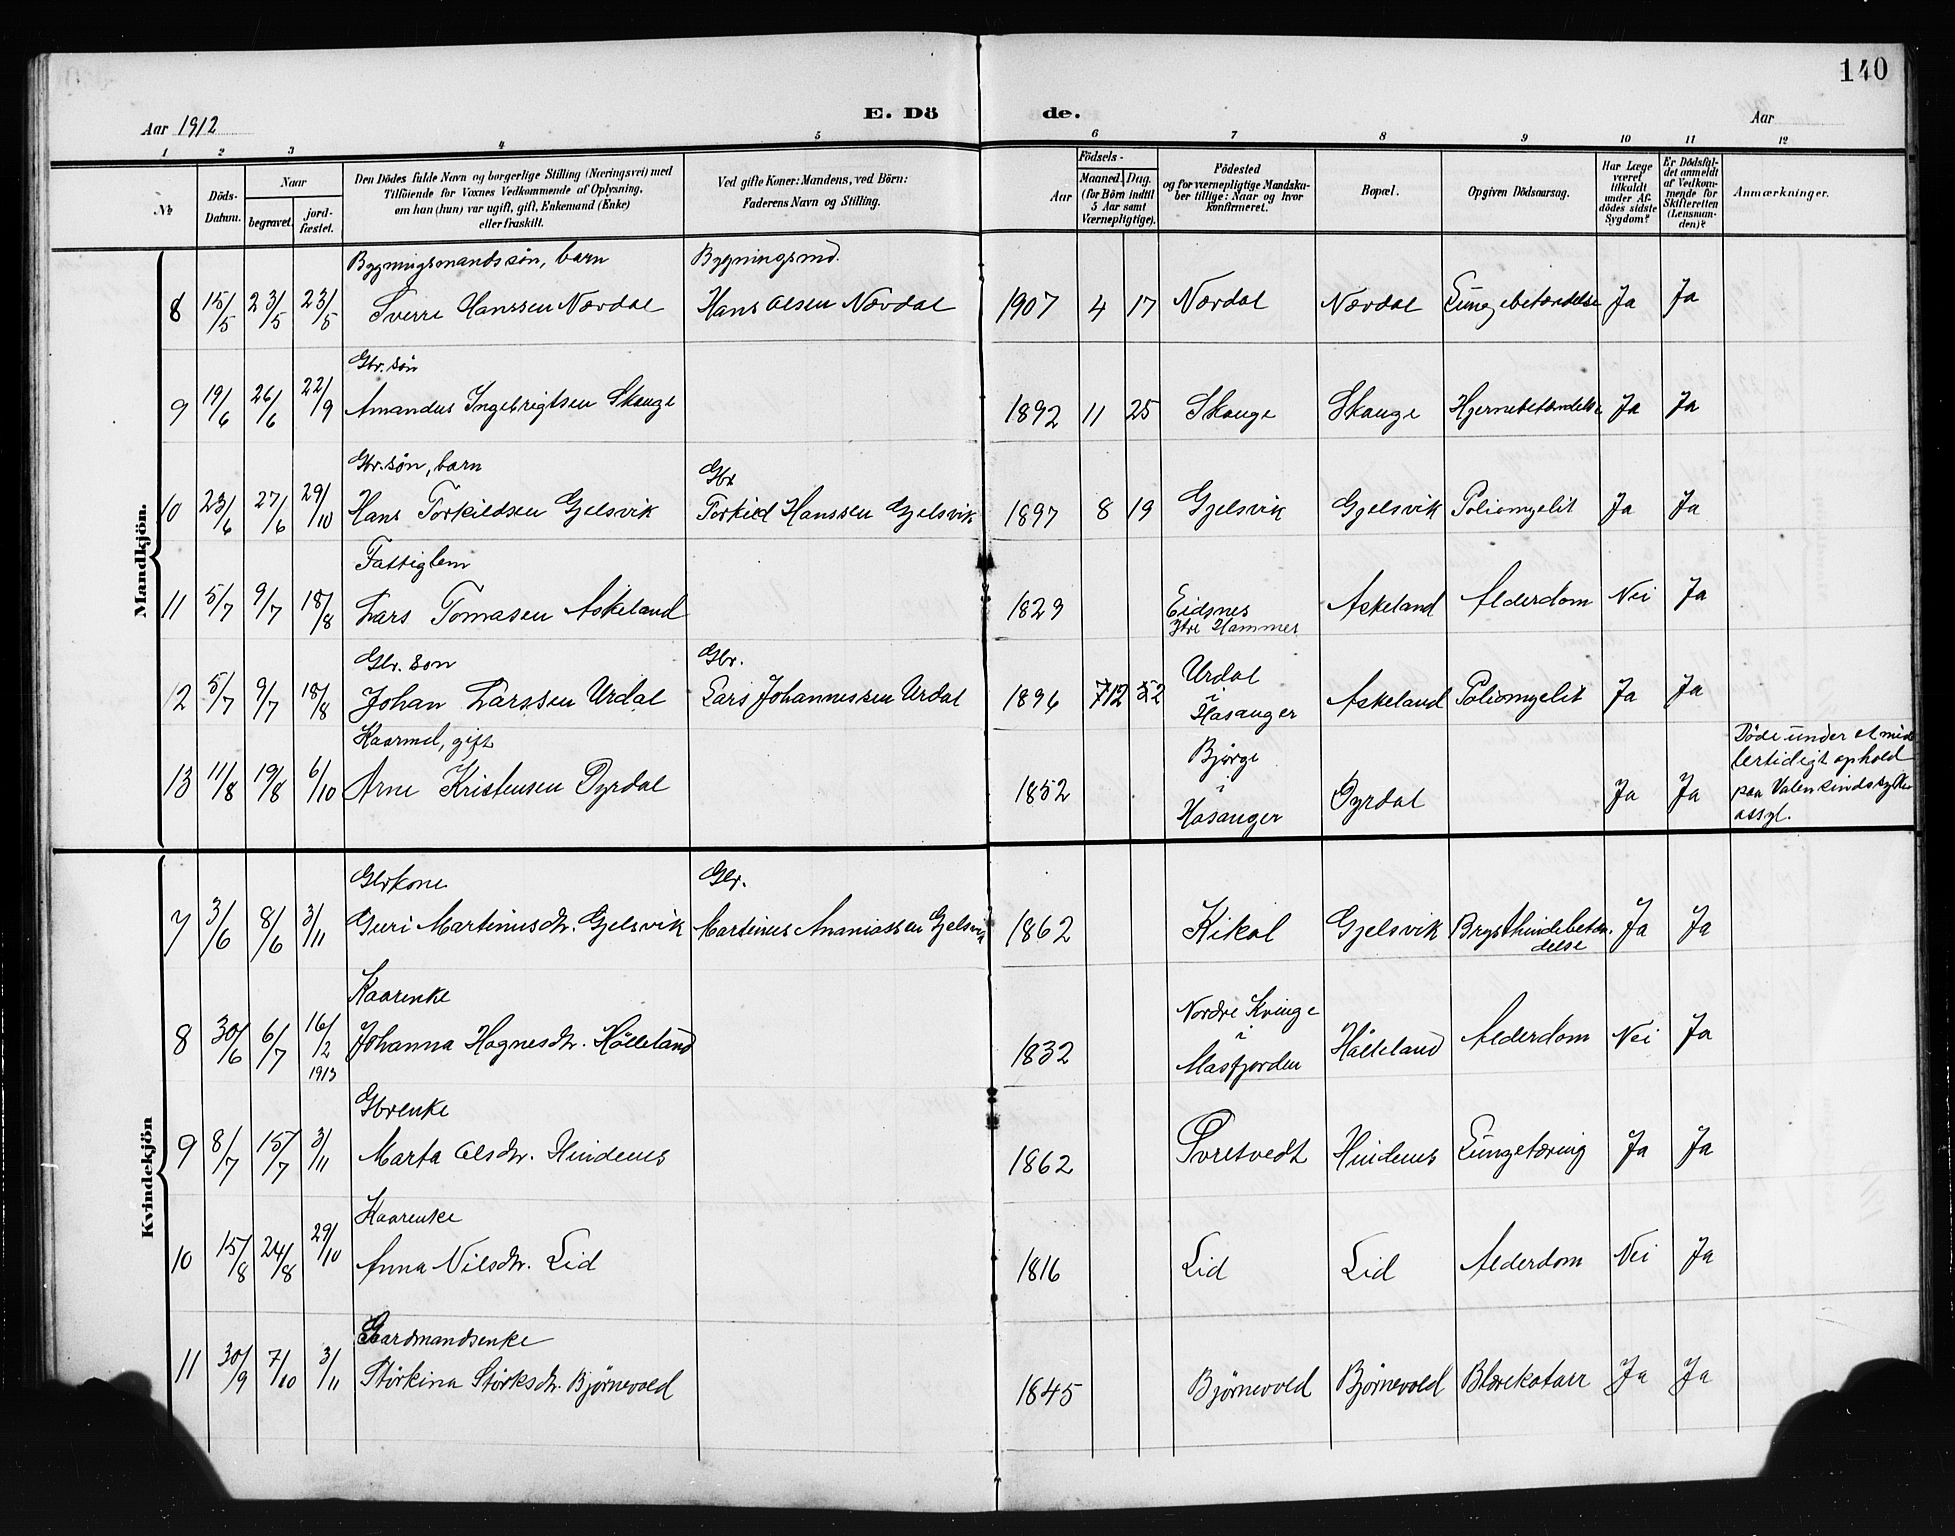 140
E. Döde.
Aar 1912
Aar
1 2 3 4 5 6 7 8 9 10 11 12
No
Döds-Datum.
Naar
begravet.
jord-fæstet.
Den Dödes fulde Navn og borgerlige Stilling (Næringsvei) med
Tilföiende for Voxnes Vedkommende af Oplysning,
om han (hun) var ugift, gift, Enkemand (Enke)
eller fraskilt.
Ved gifte Koner: Mandens, ved Börn:
Faderens Navn og Stilling.
Födsels-
Aar
Maaned. Dag.
(for Börn indtil
5 Aar samt
Værnepligtige).
Födested
og for værnepligtige Mandska-
ber tillige: Naar og hvor
konfirmeret.
Bopæl.
Opgiven Dödsaarsag.
Har Læge
været
tilkaldt
under Af-
dödes sidste
Sygdom?
Er Dödsfal-
det anmeldt
af Vedkom-
mende for
Skifteretten
(Lensman-
den)?
Anmærkninger.
Mandkjön.
Bygningsmandssön, barn Bygningsmd.
8 15/5 23/5 23/5 Sverre Hanssen Nævdal Hans Olsen Nævdal 1907 4 17 Nævdal Nævdal Lungebetændelse Ja Ja
Gbr. sön
9 19/6 26/6 22/9 Amandus Ingebrigtsen Skauge 1892 11 25 Skauge Skauge Hjernebetændelse Ja Ja
Gbr. sön, barn Gbr
10 23/6 27/6 29/10 Hans Torkildsen Gjelsvik Torkild Hanssen Gjelsvik 1897 8 19 Gjelsvik Gjelsvik Poliomyelit Ja Ja
Fattiglem
11 5/7 9/7 18/8 Lars Tomasen Askeland 1829 Eidsnes Ytre Hammer Askeland Alderdom Nei Ja
Gbr. son Gbr.
12 5/7 9/7 18/8 Johan Larssen Urdal Lars Johannessen Urdal 1896 12 2 Urdal i Hosanger Askeland Poliomyelit Ja Ja
Kaarmd, gift
13 11/8 19/8 6/10 Arne Kristensen Dyrdal 1852 Bjørge i Hosanger Dyrdal Ja Ja
Döde under et mid
lertidigt ophold
paa Valen sindssyke
assyl.
Kvindekjön
Gbrkone Gbr.
7 3/6 8/6 3/11 Guri Martinusdtr. Gjelsvik Martinus Ananiassen Gjelsvik 1862 Kikal Gjelsvik Brysthindebetæn-
delse Ja Ja
Kaarenke
8 30/6 6/7 16/2 1913 Johanna Hognesdtr. Hålleland 1832 Nordre Kvinge i Masfjorden Hålleland Alderdom Nei Ja
Gbrenke
9 8/7 15/7 3/11 Marta Olsdtr. Hindenes 1862 Tvretvedt Hindenes Lungetæring Ja Ja
Kaarenke
10 15/8 24/8 29/10 Anna Nilsdtr. Lid 1816 Lid Lid Alderdom Nei Ja
Gardmandsenke
11 30/9 7/10 3/11 Störkina Störksdtr. Bjørnevold 1845 Bjørnevold Bjørnevold Blærekatarr Ja Ja